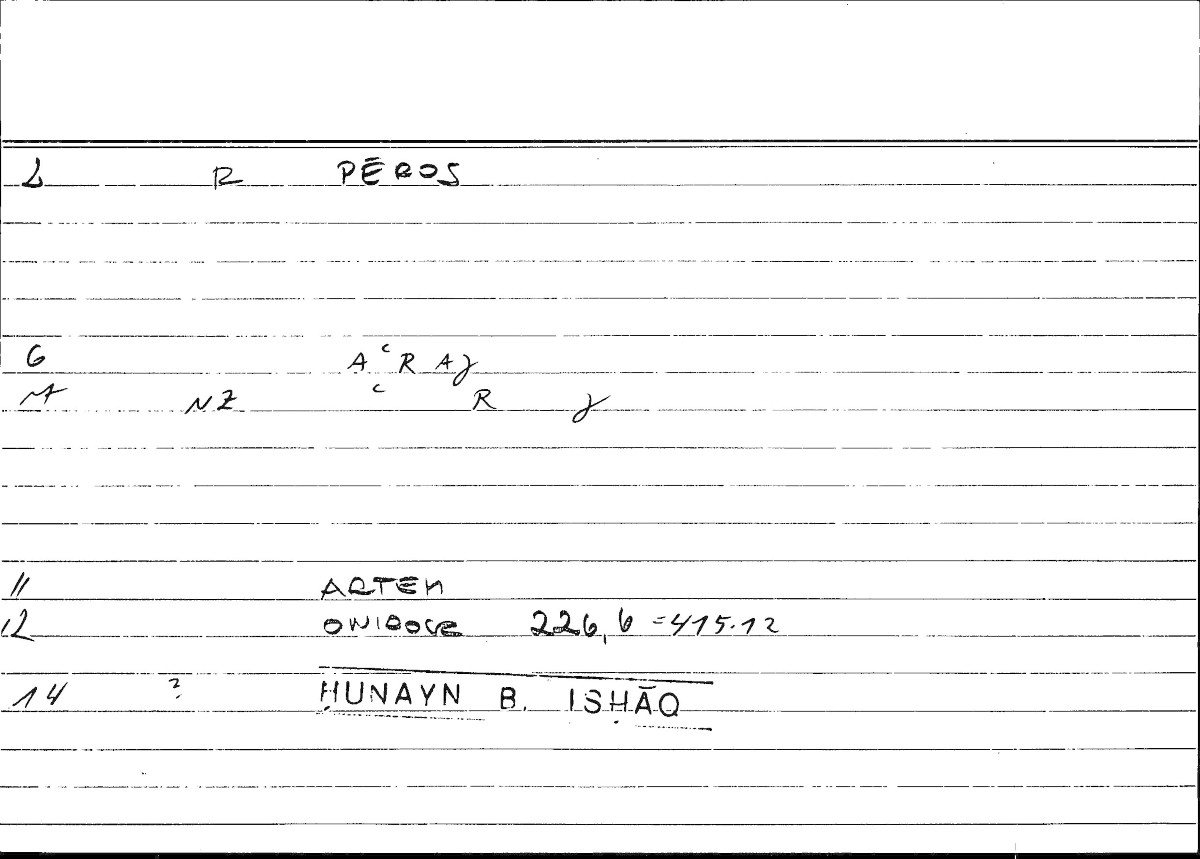 2 R PĒROS
6 A ʿ R A J
NZ ʿ R J
11 ARTEM
12 ONIROCR 226,6 =415.12
14 ? ḤUNAYN B. ISḤĀQ